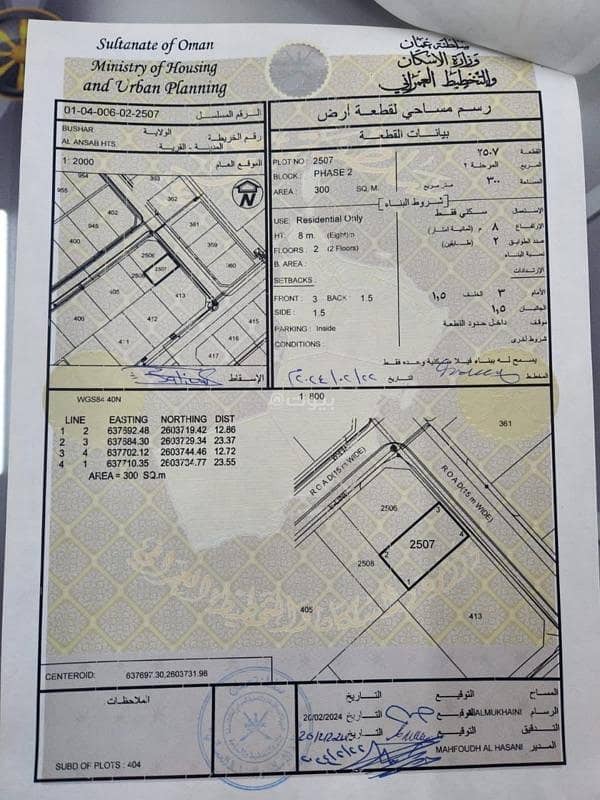 Sultanate of Oman
Ministry of Housing
and Urban Planning
سلطنة عمان
وزارة الإسكان
والتخطيط العمراني
01-04-006-02-2507
الرقم المسلسل
BUSHAR
الولاية
رقم الخريطة
AL ANSAB HTS.
المدينة - القرية
1: 2000
الموقع العام
رسم مساحي لقطعة أرض
بيانات القطعة
PLOT NO : 2507
القطعة ٢٥٠٧
BLOCK : PHASE 2
المربع المرحلة ٢
AREA : 300 SQ. M.
المساحة ٣٠٠ متر مربع
شروط البناء
USE: Residential Only
الاستعمال سكني فقط
HT: 8 m. (Eight)m
الارتفاع ٨ م (ثمانية أمتار)
FLOORS : 2 (2 Floors)
عدد الطوابق ٢ (طابقين)
B. AREA :
نسبة البناء
SETBACKS :
الارتدادات
FRONT : 3 BACK : 1.5
الأمام ٣ الخلف ١,٥
SIDE : 1.5
الجانبان ١,٥
PARKING : Inside
موقف داخل حدود القطعة
CONDITIONS :
شروط أخرى
يسمح له ببناء فيلا سكنية وحده فقط
المخطط
التاريخ
٢٠٢٤/٠٢/٢٢
الإسقاط
N
955
954
402
445
400
362
361
359
360
2506
2508
2507
406
405
413
412
415
417
416
WGS84 40N
1: 800
LINE EASTING NORTHING DIST
1 2 637692.48 2603719.42 12.86
2 3 637684.30 2603729.34 23.37
3 4 637702.12 2603744.46 12.72
4 1 637710.35 2603734.77 23.55
AREA = 300 SQ.m
بيوت@
361
ROAD(15 m WIDE)
ROAD(15 m WIDE)
2506
2508
2507
1
2
3
4
405
413
CENTEROID: 637697.30,2603731.96
الملاحظات
SUBD OF PLOTS : 404
المساح
التوقيع
التاريخ
الرسام
ALMUKHAINI
التوقيع
20/02/2024
التاريخ
التدقيق
التوقيع
التاريخ
المدير
MAHFOUDH AL HASANI
التوقيع
التاريخ